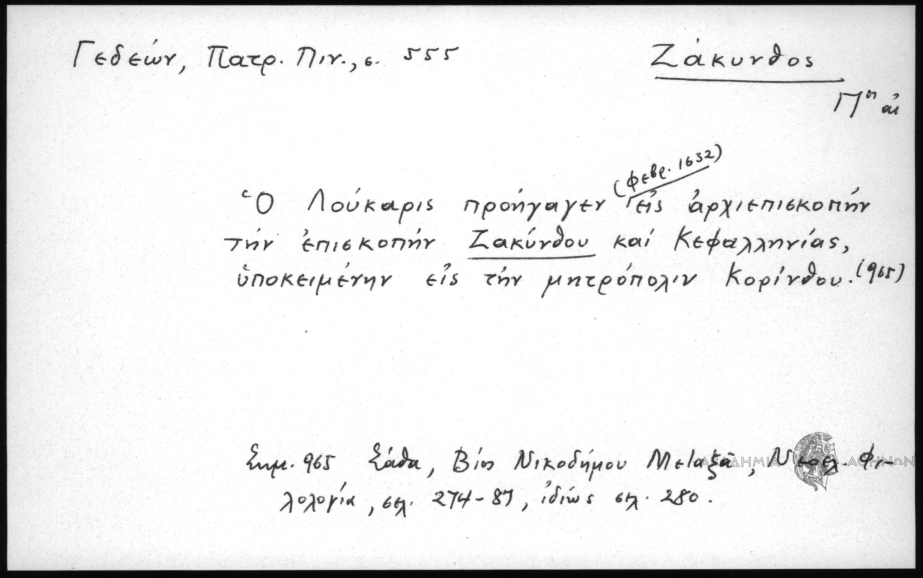 Γεδεών, Πατρ. Πιν., σ. 555
Ζάκυνθος
Ὁ Λούκαρις προήγαγεν (φεβρ. 1632) εἰς ἀρχιεπισκοπήν
τήν ἐπισκοπήν Ζακύνθου καί Κεφαλληνίας,
ὑποκειμένην εἰς τήν μητρόπολιν Κορίνθου. (965)
Σημ. 965 Σάθα, Βίος Νικοδήμου Μεταξᾶ, Νεοελ. Φι-
λολογία, σελ. 274-87, ἰδίως σελ. 280.
ΑΚΑΔΗΜΙΑ ΑΘΗΝΩΝ